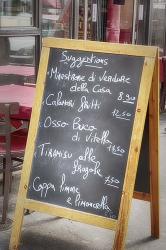 Suggestions
Minestrone di verdure
della Casa 8,90
Calamari fritti
12,50
Osso Buco
di vitella
Tiramisu alle
fragole 7,50
Coppa limone
e limoncello